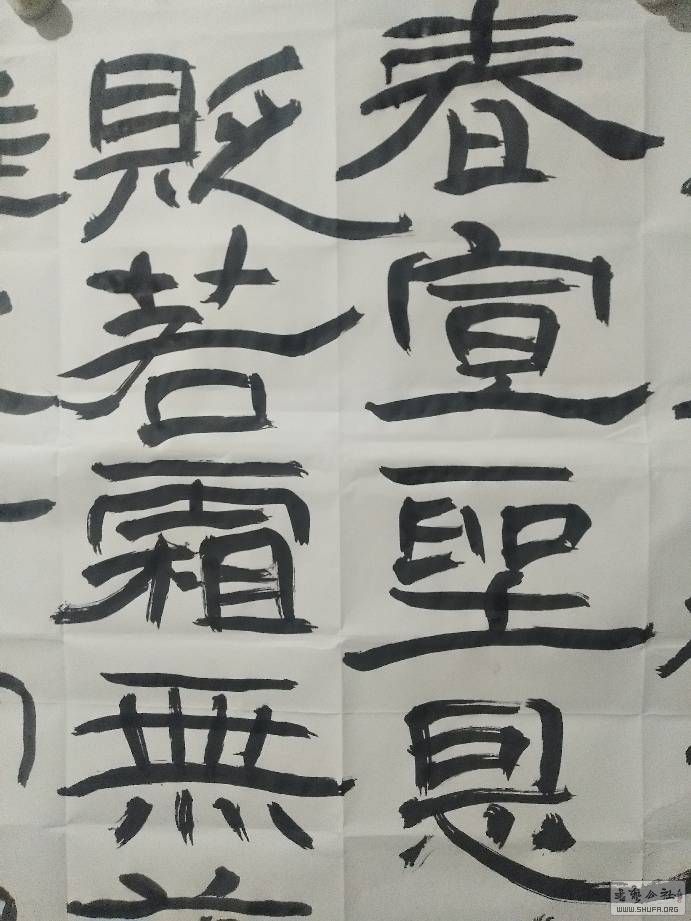 春宣聖恩
貶若霜無
书艺公社
WWW.SHUFA.ORG